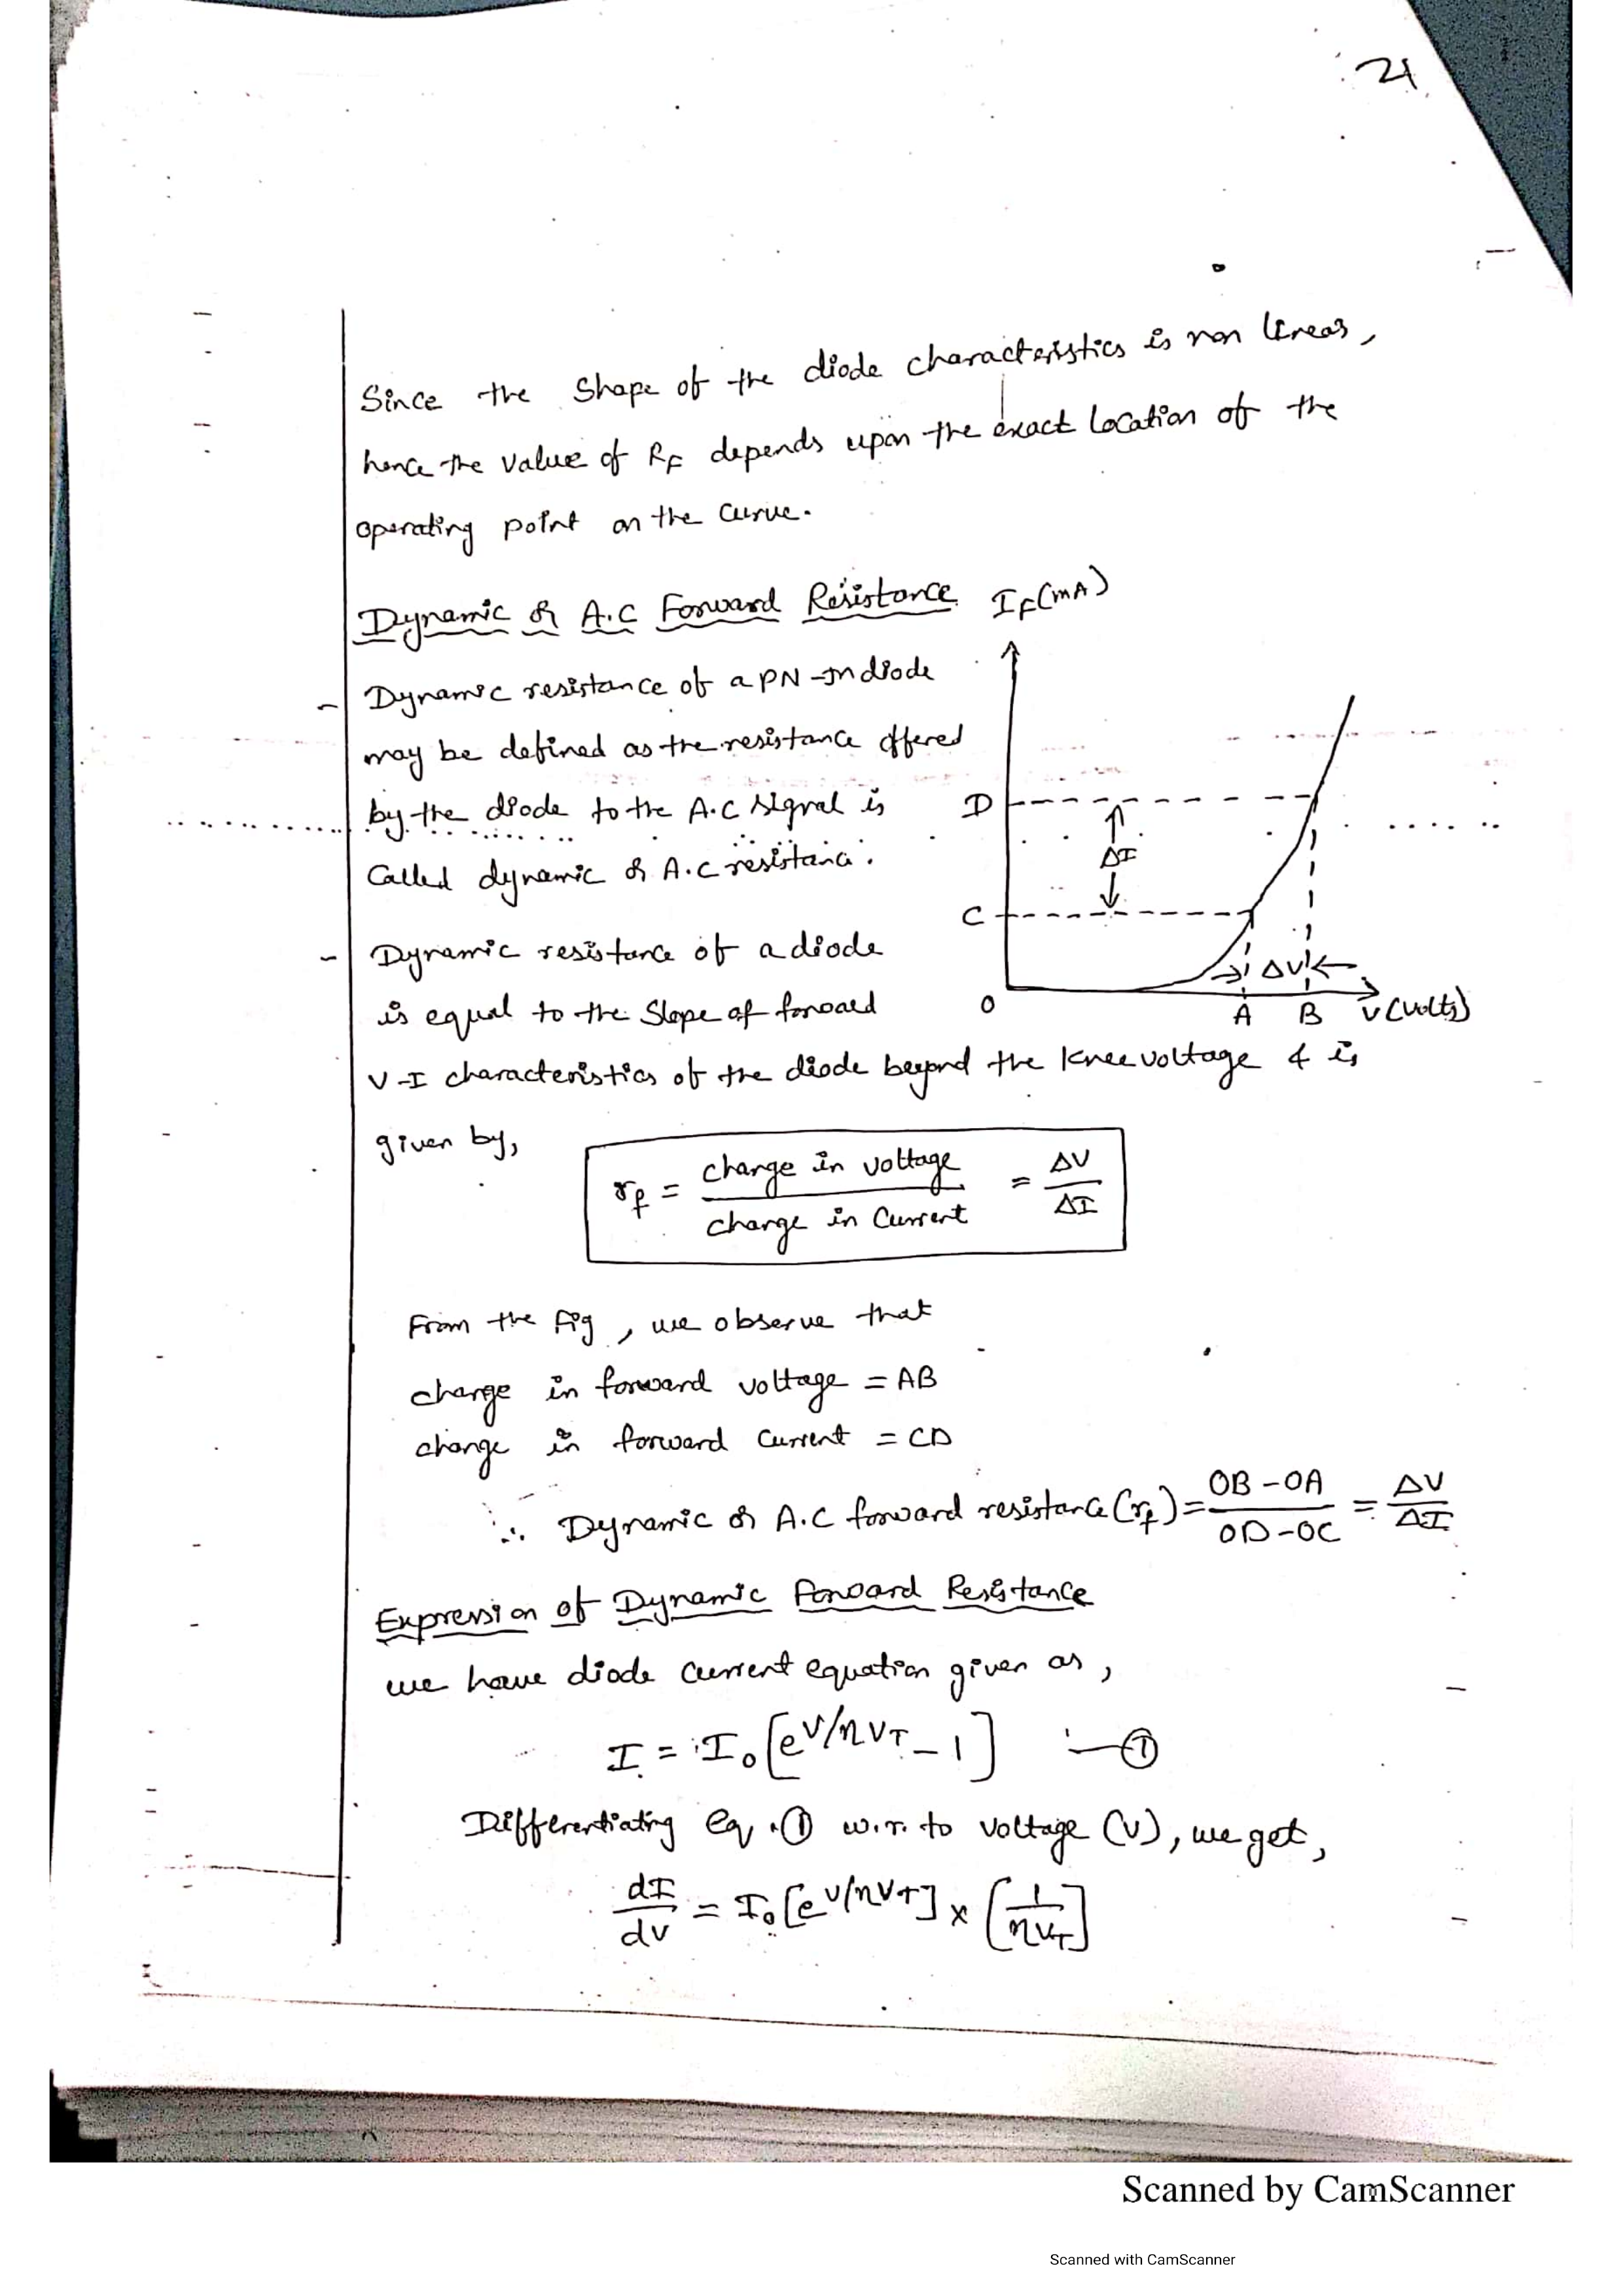 21
Since the shape of the diode characteristics is non linear,
hence the value of RF depends upon the exact location of the
operating point on the curve.
Dynamic or A.C Forward Resistance
IF(mA)
- Dynamic resistance of a PN-Jn diode
may be defined as the resistance offered
by the diode to the A.C signal is
Called dynamic or A.C resistance.
D
ΔI
C
- Dynamic resistance of a diode
ΔV
is equal to the slope of forward
O A B V(volts)
V-I characteristics of the diode beyond the knee voltage & is
given by,
rf = change in voltage / change in current = ΔV / ΔI
From the fig, we observe that
change in forward voltage = AB
change in forward current = CD
∴ Dynamic or A.C forward resistance (rf) = OB - OA / OD - OC = ΔV / ΔI
Expression of Dynamic Forward Resistance
we have diode current equation given as,
I = I₀ [e^V/ηVT - 1] — ①
Differentiating eq. ① w.r. to voltage (V), we get,
dI/dV = I₀ [e^V/ηVT] × [1/ηVT]
Scanned by CamScanner
Scanned with CamScanner